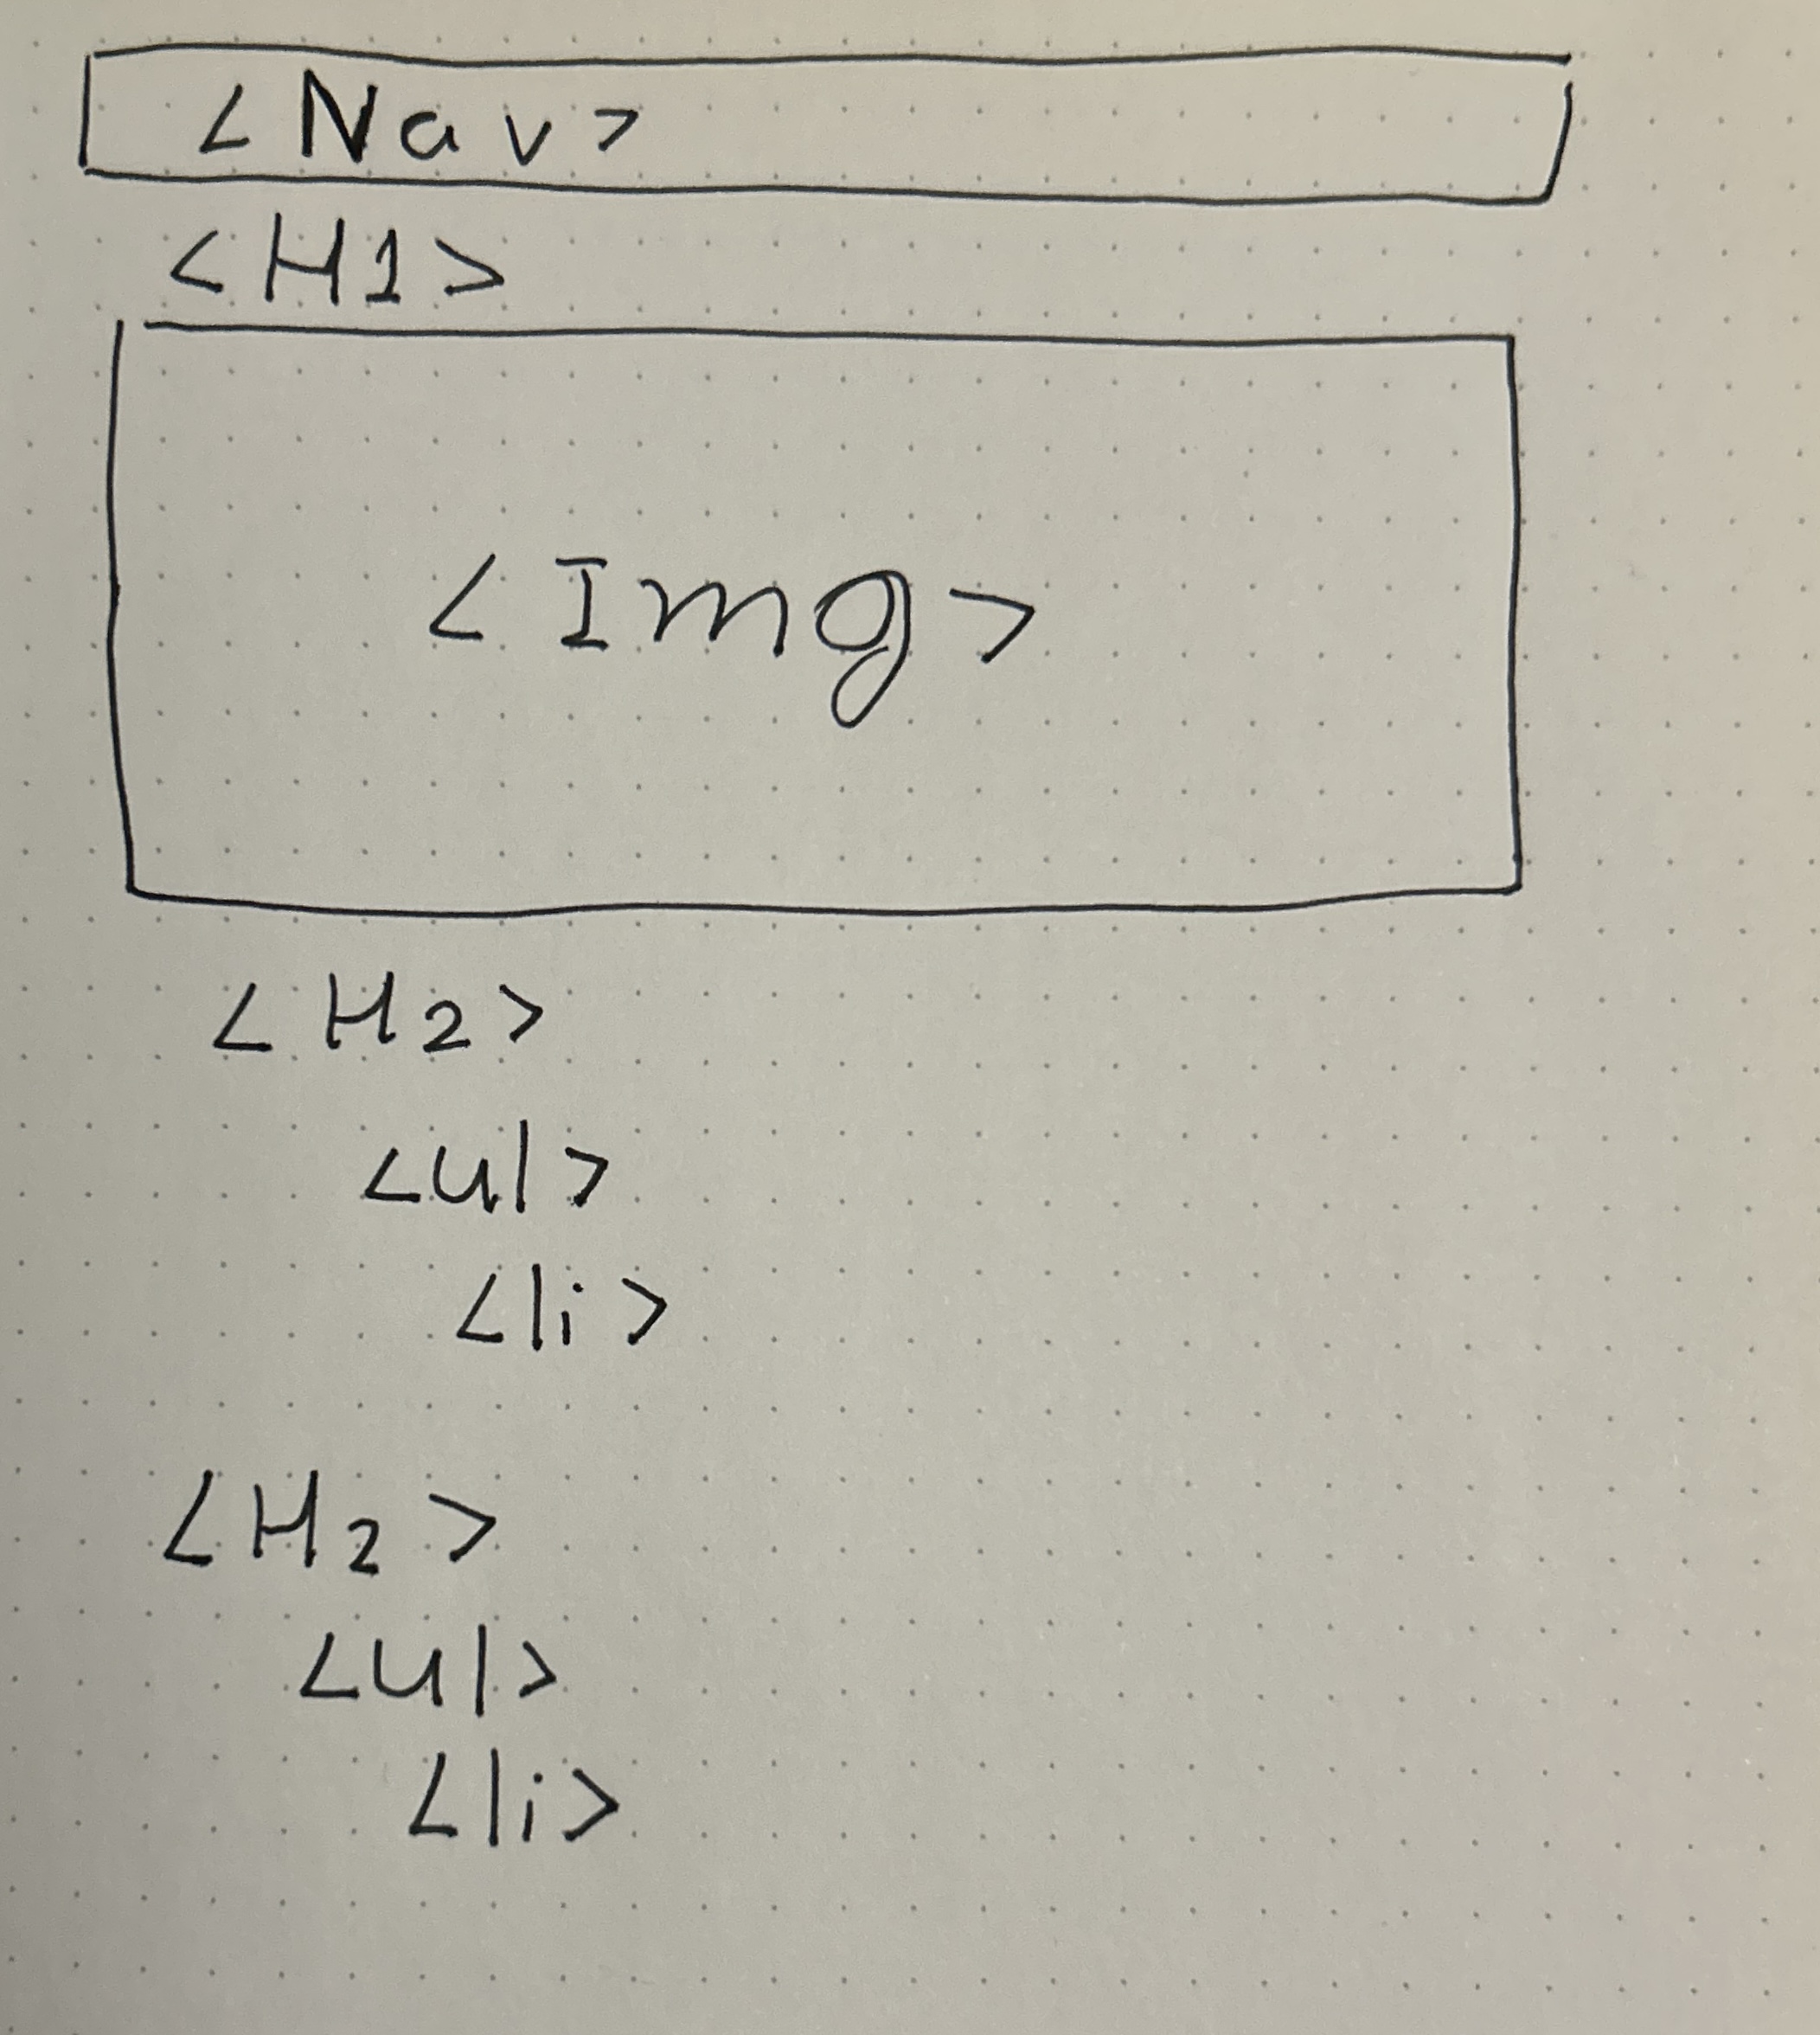 <Nav>
<H1>
<Img>
<H2>
<ul>
<li>
<H2>
<ul>
<li>